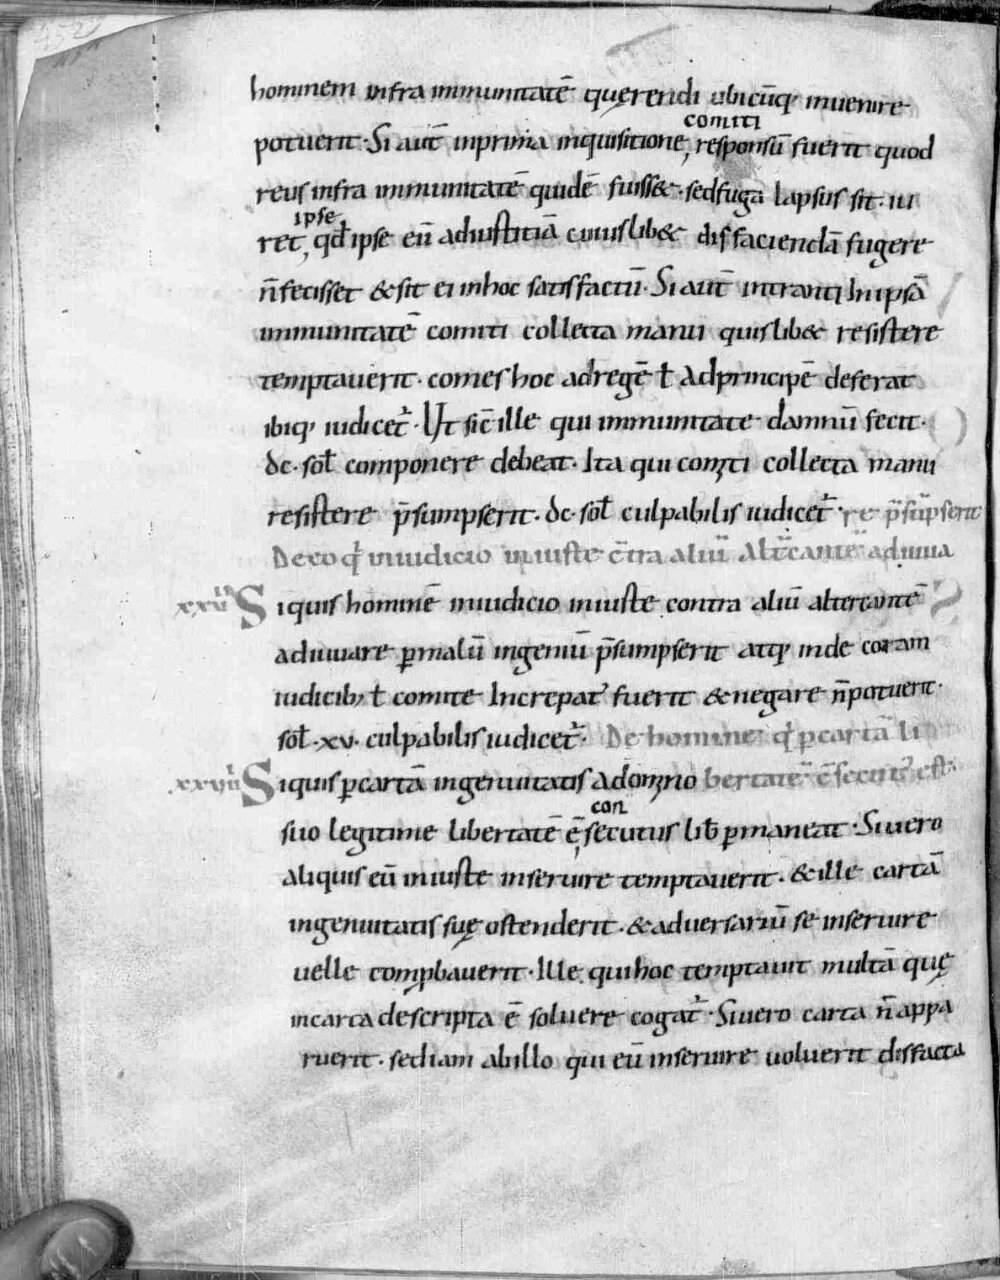 hominem infra immunitatē quęrendi ubicūq; inuenire
potuerit · Si aut̄ inprima inquisitione, comiti responsū fuerit quod
reus infra immunitatē quidē fuiss& · sed fuga lapsus sit · iu
ret, ipse qđ ipse eū adiustitiā cuiuslib& disfaciendā fugere
n̄ fecisset & sit ei inhoc satisfactū · Si aut̄ intranti In ipsā
immunitatē comiti collecta manu quislib& resistere
temptauerit · comes hoc adregē ł Adprincipē deferat
ibiq; iudicet̄ · Ut sic̄ ille qui immunitate damnū fecit ·
dc · soł componere debeat · Ita qui comiti collecta manu
resistere p̄sumpserit · dc · soł culpabilis iudicet̄ · re p̄sūpserit
De eo qđ iniudicio iniuste c̄tra aliū altc̄cante adiuua
xxvi Siquis hominē iniudicio iniuste contra aliū altercantē
adiuuare p̱ malū ingeniū p̄sumpserit atq; inde coram
iudicib; ł comite Increpat' fuerit & negare n̄ potuerit ·
soł · xv · culpabilis iudicet̄ · De homine qđ p̱ cartā li
xxvii Siquis p̱ cartā ingenuitatis adomno bertatē c̄secut' est
suo legitime libertatē ē, consecutus lib̄ p̱maneat · Si uero
aliquis eū iniuste inseruire temptauerit · & ille cartā
ingenuitatis suę ostenderit · & aduersariū se inseruire
uelle comp̱bauerit · Ille qui hoc temptauit multā quę
incarta descripta ē soluere cogat̄ · Si uero carta n̄ appa
ruerit · sed iam abillo qui eū inseruire uoluerit disfacta